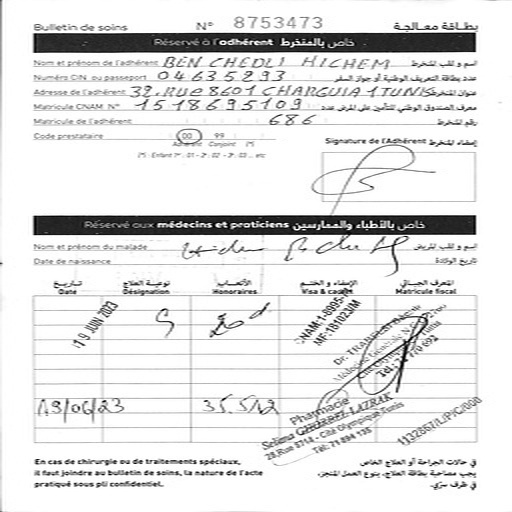 Bulletin de soins N° 8753473 بطاقة معالجة
Réservé à l'adhérent خاص بالمنخرط
Nom et prénom de l'adhérent BEN CHEDLI HICHEM اسم و لقب المنخرط
Numéro CIN ou passeport 04635293 عدد بطاقة التعريف الوطنية أو جواز السفر
Adresse de l'adhérent 32, Rue 8601 CHARGUIA 1 TUNIS عنوان المنخرط
Matricule CNAM N° 1518695109 معرف الصندوق الوطني للتأمين على المرض عدد
Matricule de l'adhérent 686 رقم المنخرط
Code prestataire 00 99
Adhérent Conjoint (*)
(*) : Enfant 1er : 01 - 2e : 02 - 3e : 03 ... etc
Signature de l'Adhérent إمضاء المنخرط
Réservé aux médecins et praticiens خاص بالأطباء والممارسين
Nom et prénom du malade اسم و لقب المريض
Date de naissance تاريخ الولادة
تاريخ نوعية العلاج الأتعاب الإمضاء و الختم المعرف الجبائي
Date Désignation Honoraires Visa & cachet Matricule fiscal
19 JUIN 2023
Dr.
19/06/23 35.512
Pharmacie
Selima LAZRAK
28, Rue 8714 - Cité Olympique Tunis
Tél: 71 894 135
1132867/L/P/C/000
En cas de chirurgie ou de traitements spéciaux,
il faut joindre au bulletin de soins, la nature de l'acte
pratiqué sous pli confidentiel.
في حالات الجراحة أو العلاج الخاص
يجب مصاحبة بطاقة العلاج، بنوع العمل المنجز،
في ظرف سري.